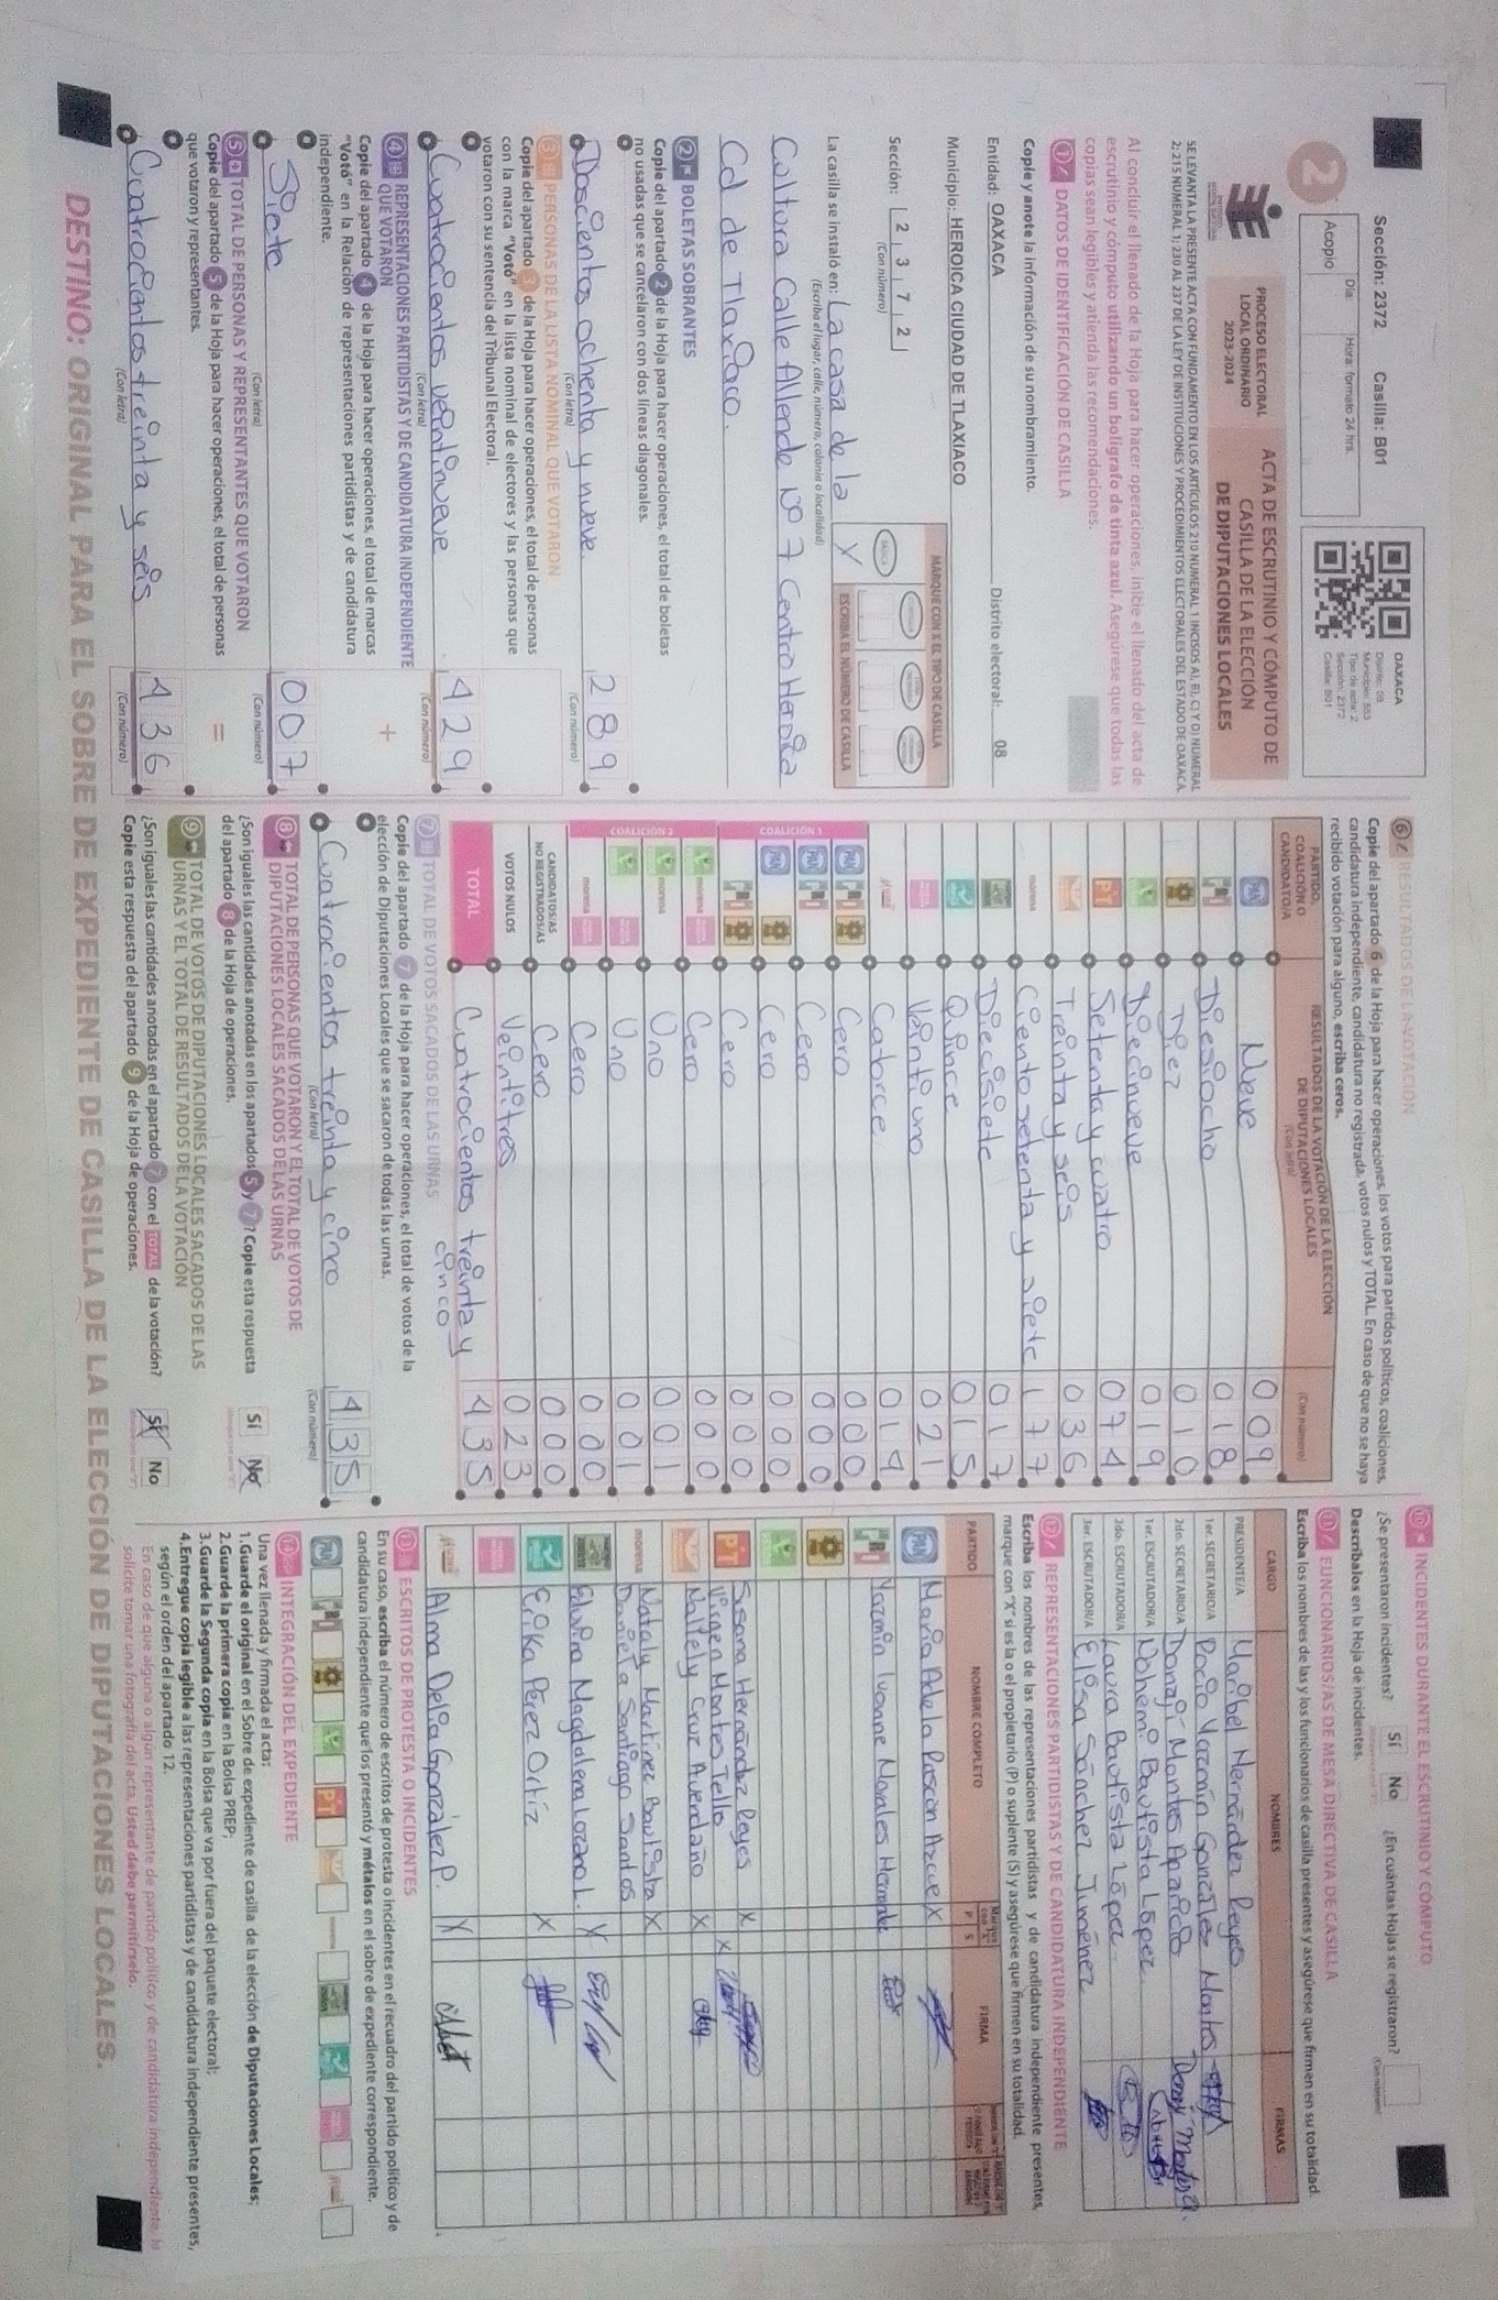 Sección: 2372 Casilla: B01
2
Acopio
Día:
Hora: formato 24 hrs.
OAXACA
Distrito: 08
Municipio: 553
Tipo de acta: 2
Sección: 2372
Casilla: B01
PROCESO ELECTORAL
LOCAL ORDINARIO
2023-2024
ACTA DE ESCRUTINIO Y CÓMPUTO DE
CASILLA DE LA ELECCIÓN
DE DIPUTACIONES LOCALES
SE LEVANTA LA PRESENTE ACTA CON FUNDAMENTO EN LOS ARTÍCULOS 210 NUMERAL 1 INCISOS A), B), C) Y D) NUMERAL
2; 215 NUMERAL 1; 230 AL 237 DE LA LEY DE INSTITUCIONES Y PROCEDIMIENTOS ELECTORALES DEL ESTADO DE OAXACA.
Al concluir el llenado de la Hoja para hacer operaciones, inicie el llenado del acta de
escrutinio y cómputo utilizando un bolígrafo de tinta azul. Asegúrese que todas las
copias sean legibles y atienda las recomendaciones.
1 DATOS DE IDENTIFICACIÓN DE CASILLA
Copie y anote la información de su nombramiento.
Entidad: OAXACA Distrito electoral: 08
Municipio: HEROICA CIUDAD DE TLAXIACO
Sección: 2 3 7 2
(Con número)
MARQUE CON X EL TIPO DE CASILLA
BÁSICA
X
ESCRIBA EL NÚMERO DE CASILLA
La casilla se instaló en: La casa de la
(Escriba el lugar, calle, número, colonia o localidad)
Cultura Calle Allende Nº 7 Centro Heroica
Cd de Tlaxiaco.
2 BOLETAS SOBRANTES
Copie del apartado 2 de la Hoja para hacer operaciones, el total de boletas
no usadas que se cancelaron con dos líneas diagonales.
Doscientos ochenta y nueve. 289
(Con letra) (Con número)
3 PERSONAS DE LA LISTA NOMINAL QUE VOTARON
Copie del apartado 3 de la Hoja para hacer operaciones, el total de personas
con la marca "Votó" en la lista nominal de electores y las personas que
votaron con su sentencia del Tribunal Electoral.
Cuatrocientos veintinueve 429
(Con letra) (Con número)
4 REPRESENTACIONES PARTIDISTAS Y DE CANDIDATURA INDEPENDIENTE
QUE VOTARON
Copie del apartado 4 de la Hoja para hacer operaciones, el total de marcas
"Votó" en la Relación de representaciones partidistas y de candidatura
independiente.
+
Siete 007
(Con letra) (Con número)
5 TOTAL DE PERSONAS Y REPRESENTANTES QUE VOTARON
Copie del apartado 5 de la Hoja para hacer operaciones, el total de personas
que votaron y representantes.
=
Cuatrocientos treinta y seis 436
(Con letra) (Con número)
6 RESULTADOS DE LA VOTACIÓN
Copie del apartado 6 de la Hoja para hacer operaciones, los votos para partidos políticos, coaliciones,
candidatura independiente, candidatura no registrada, votos nulos y TOTAL. En caso de que no se haya
recibido votación para alguno, escriba ceros.
PARTIDO,
COALICIÓN O
CANDIDATO/A
RESULTADOS DE LA VOTACIÓN DE LA ELECCIÓN
DE DIPUTACIONES LOCALES
(Con letra)
(Con número)
PAN Nueve 009
PRI Dieciocho 018
Diez 010
Diecinueve 019
PT Setenta y cuatro 074
Treinta y seis 036
morena Ciento setenta y siete 177
Diecisiete 017
Quince 015
Veintiuno 021
Catorce 014
COALICIÓN 1
PAN PRI Cero 000
PAN PRI Cero 000
PAN Cero 000
PRI Cero 000
COALICIÓN 2
morena Cero 000
morena Uno 001
Uno 001
morena Cero 000
CANDIDATOS/AS
NO REGISTRADOS/AS Cero 000
VOTOS NULOS Veintitres 023
TOTAL Cuatrocientos treinta y
cinco 435
7 TOTAL DE VOTOS SACADOS DE LAS URNAS
Copie del apartado 7 de la Hoja para hacer operaciones, el total de votos de la
elección de Diputaciones Locales que se sacaron de todas las urnas.
Cuatrocientos treinta y cinco 435
(Con letra) (Con número)
8 TOTAL DE PERSONAS QUE VOTARON Y EL TOTAL DE VOTOS DE
DIPUTACIONES LOCALES SACADOS DE LAS URNAS
¿Son iguales las cantidades anotadas en los apartados 5 y 7? Copie esta respuesta
del apartado 8 de la Hoja de operaciones.
Sí No X
9 TOTAL DE VOTOS DE DIPUTACIONES LOCALES SACADOS DE LAS
URNAS Y EL TOTAL DE RESULTADOS DE LA VOTACIÓN
¿Son iguales las cantidades anotadas en el apartado 7 con el TOTAL de la votación?
Copie esta respuesta del apartado 9 de la Hoja de operaciones.
Sí X No
10 INCIDENTES DURANTE EL ESCRUTINIO Y CÓMPUTO
¿Se presentaron incidentes? Sí No ¿En cuántas Hojas se registraron?
(Con número)
Descríbalos en la Hoja de incidentes.
11 FUNCIONARIOS/AS DE MESA DIRECTIVA DE CASILLA
Escriba los nombres de las y los funcionarios de casilla presentes y asegúrese que firmen en su totalidad.
CARGO NOMBRES FIRMAS
PRESIDENTE/A Maribel Hernández Reyes
1er. SECRETARIO/A Rocío Yazmín González Montes
2do. SECRETARIO/A Donají Montes Aparicio
1er. ESCRUTADOR/A Nohemí Bautista López
2do. ESCRUTADOR/A Laura Bautista López
3er. ESCRUTADOR/A Elisa Sánchez Jiménez
12 REPRESENTACIONES PARTIDISTAS Y DE CANDIDATURA INDEPENDIENTE
Escriba los nombres de las representaciones partidistas y de candidatura independiente presentes,
marque con "X" si es la o el propietario (P) o suplente (S) y asegúrese que firmen en su totalidad.
PARTIDO NOMBRE COMPLETO P S FIRMA
PAN Maria Adela Rascon Azcue X
PRI Yazmin Ivonne Morales Hernandez
PT Susana Hernández Reyes X
Virgen Montes Tello X
Naltely Cruz Avendaño X
morena Nataly Martínez Bautista X
Daniela Santiago Santos
Elvira Magdalena Lozano L. X
Erika Pérez Ortíz X
Alma Delia González P. X
13 ESCRITOS DE PROTESTA O INCIDENTES
En su caso, escriba el número de escritos de protesta o incidentes en el recuadro del partido político y de
candidatura independiente que los presentó y métalos en el sobre de expediente correspondiente.
PAN PRI PT morena
14 INTEGRACIÓN DEL EXPEDIENTE
Una vez llenada y firmada el acta:
1.Guarde el original en el Sobre de expediente de casilla de la elección de Diputaciones Locales;
2.Guarde la primera copia en la Bolsa PREP;
3.Guarde la Segunda copia en la Bolsa que va por fuera del paquete electoral;
4.Entregue copia legible a las representaciones partidistas y de candidatura independiente presentes,
según el orden del apartado 12.
En caso de que alguna o algún representante de partido político y de candidatura independiente lo
solicite tomar una fotografía del acta, Usted debe permitírselo.
DESTINO: ORIGINAL PARA EL SOBRE DE EXPEDIENTE DE CASILLA DE LA ELECCIÓN DE DIPUTACIONES LOCALES.